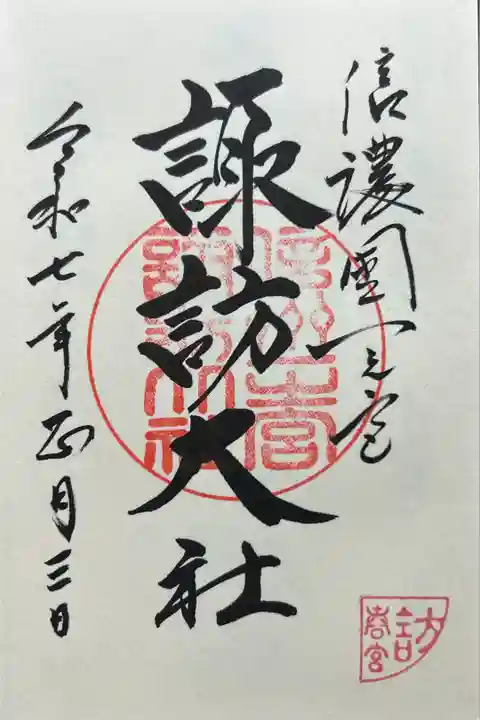 信濃國一之宮
諏訪大社
令和七年正月三日
信州一宮
諏訪大社
諏訪
春宮